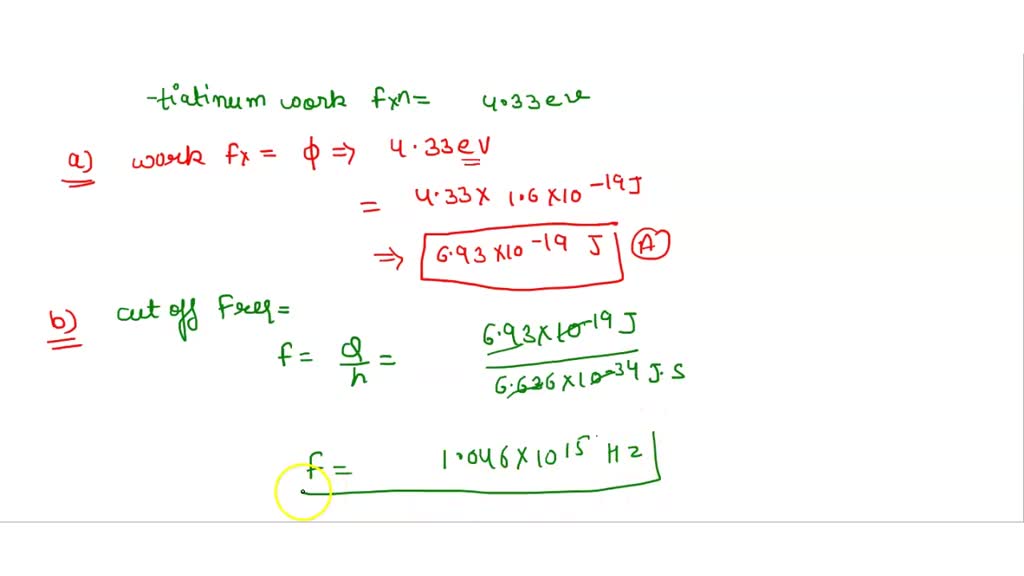 -tiatinum work fxn = 4.33 ev
a) work fx = ϕ ⇒ 4.33 eV
= 4.33 × 1.6 × 10 -19 J
⇒ 6.93 × 10 -19 J A
b) cut off Freq =
f = Q/h = 6.93 × 10 -19 J / 6.626 × 10 -34 J.S
f = 1.046 × 10 15 Hz